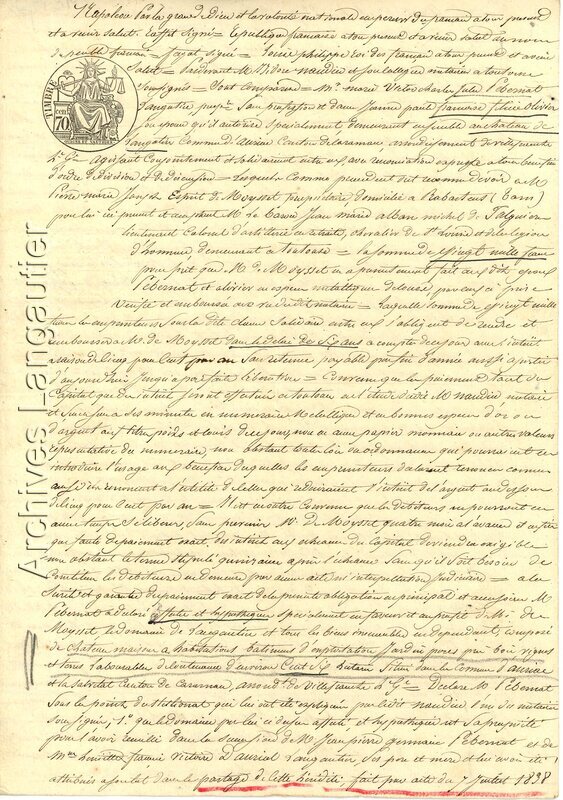 Napoléon par la grâce de Dieu et la volonté nationale empereur des français à tous présents
et à venir salut = La République française à tous présents et à venir salut au nom
du peuple français = signé = Louis philippe Roi des français à tous présents et à venir
Salut = Pardevant Me naudin et son collègue notaires à toulouse
Soussignés = Sont comparus = Mr marie victor charles jules Pébernat
Langautier, propre. sans profession et dame Jeanne paule françoise félicie olivier
Son épouse qu'il autorise spécialement, demeurant ensemble au château de
Langautier commune d'auriac canton de Caraman arrondissement de villefranche
TIMBRE
70
Hte Gne agissant conjointement et solidairement entre eux avec renonciation expresse au bénéfice
d'ordre de division et de discussion = lesquels comme procèdent ont reconnu devoir à M.
Pierre marie Joseph Esprit de Moysset propriétaire, domicilié à Rabastens (tarn)
pour lui ici présent et acceptant M. Le baron Jean marie alban michel de
lieutenant Colonel d'artillerie en retraite, chevalier de St Louis et de la légion
d'honneur, demeurant à toulouse = la somme de vingt mille francs
pour prêt que M. de Moysset a présentement fait aux dits époux
Pébernat et olivier en espèces métalliques de
vérifié et emboursé au vu du dit notaire = Laquelle somme de vingt mille
francs les emprunteurs sous la dite clause solidaire entre eux s'obligent de rendre et
rembourser à M. de Moysset dans le délai de six ans à compter de ce jour avec l'intérêt
à raison de cinq pour cent par an sans retenue payable par fin d'année aussi à partir
d'aujourd'hui jusqu'à parfaite libération = Convenu que les paiements tant du
Capital que des intérêts seront effectués à toulouse en l'étude de Me naudin notaire
et sur ses minutes en numéraire métallique et en bonnes espèces d'or ou
d'argent au titre, poids et cours de ce jour, non en aucun papier monnaie ou autres valeurs
représentatives du numéraire, non obstant toute loi ou ordonnance qui pourrait en
introduire l'usage au bénéfice desquelles les emprunteurs déclarent renoncer comme
aussi ils renoncent à l'utilité de celles qui réduiraient l'intérêt de l'argent au dessous
de cinq pour cent par an = Il est en outre convenu que les débiteurs ne pourront en
aucun temps se libérer sans prévenir M. de Moysset quatre mois à l'avance et enfin
que faute de paiement exact des intérêts aux échéances le capital deviendra exigible
non obstant le terme stipulé quinzaine après l'échéance sans qu'il soit besoin de
constituer les débiteurs en demeure par aucun acte ni interpellation judiciaire = a la
Sûreté et garantie du paiement exact de la présente obligation en principal et accessoires M.
Pébernat a déclaré affecter et hypothéquer spécialement en faveur et au profit de M. de
Moysset, le domaine de Langautier et tous les biens immeubles en dépendants, composé
de Château maison à habitations bâtiments d'exploitation jardin prés bois vignes
et terres labourables de contenance d'environ Cent Six hectares situé dans la commune d'auriac
et la salvetat Canton de Caraman, arrondt. de villefranche Hte Gne = Déclare M. Pébernat
sous la peine du stellionat qui lui ont été expliquées par le dit naudin l'un des notaires
soussignés, 1° que le domaine par lui ci dessus affecté et hypothéqué est sa propriété
pour l'avoir recueilli dans la succession de M. Jean pierre germain Pébernat et de
Mme henriette jeanne victoire d'auriol Langautier ses père et mère et lui avoir été
attribués à son lot dans le partage de cette hérédité fait par acte du 7 Juillet 1838
Archives Langautier